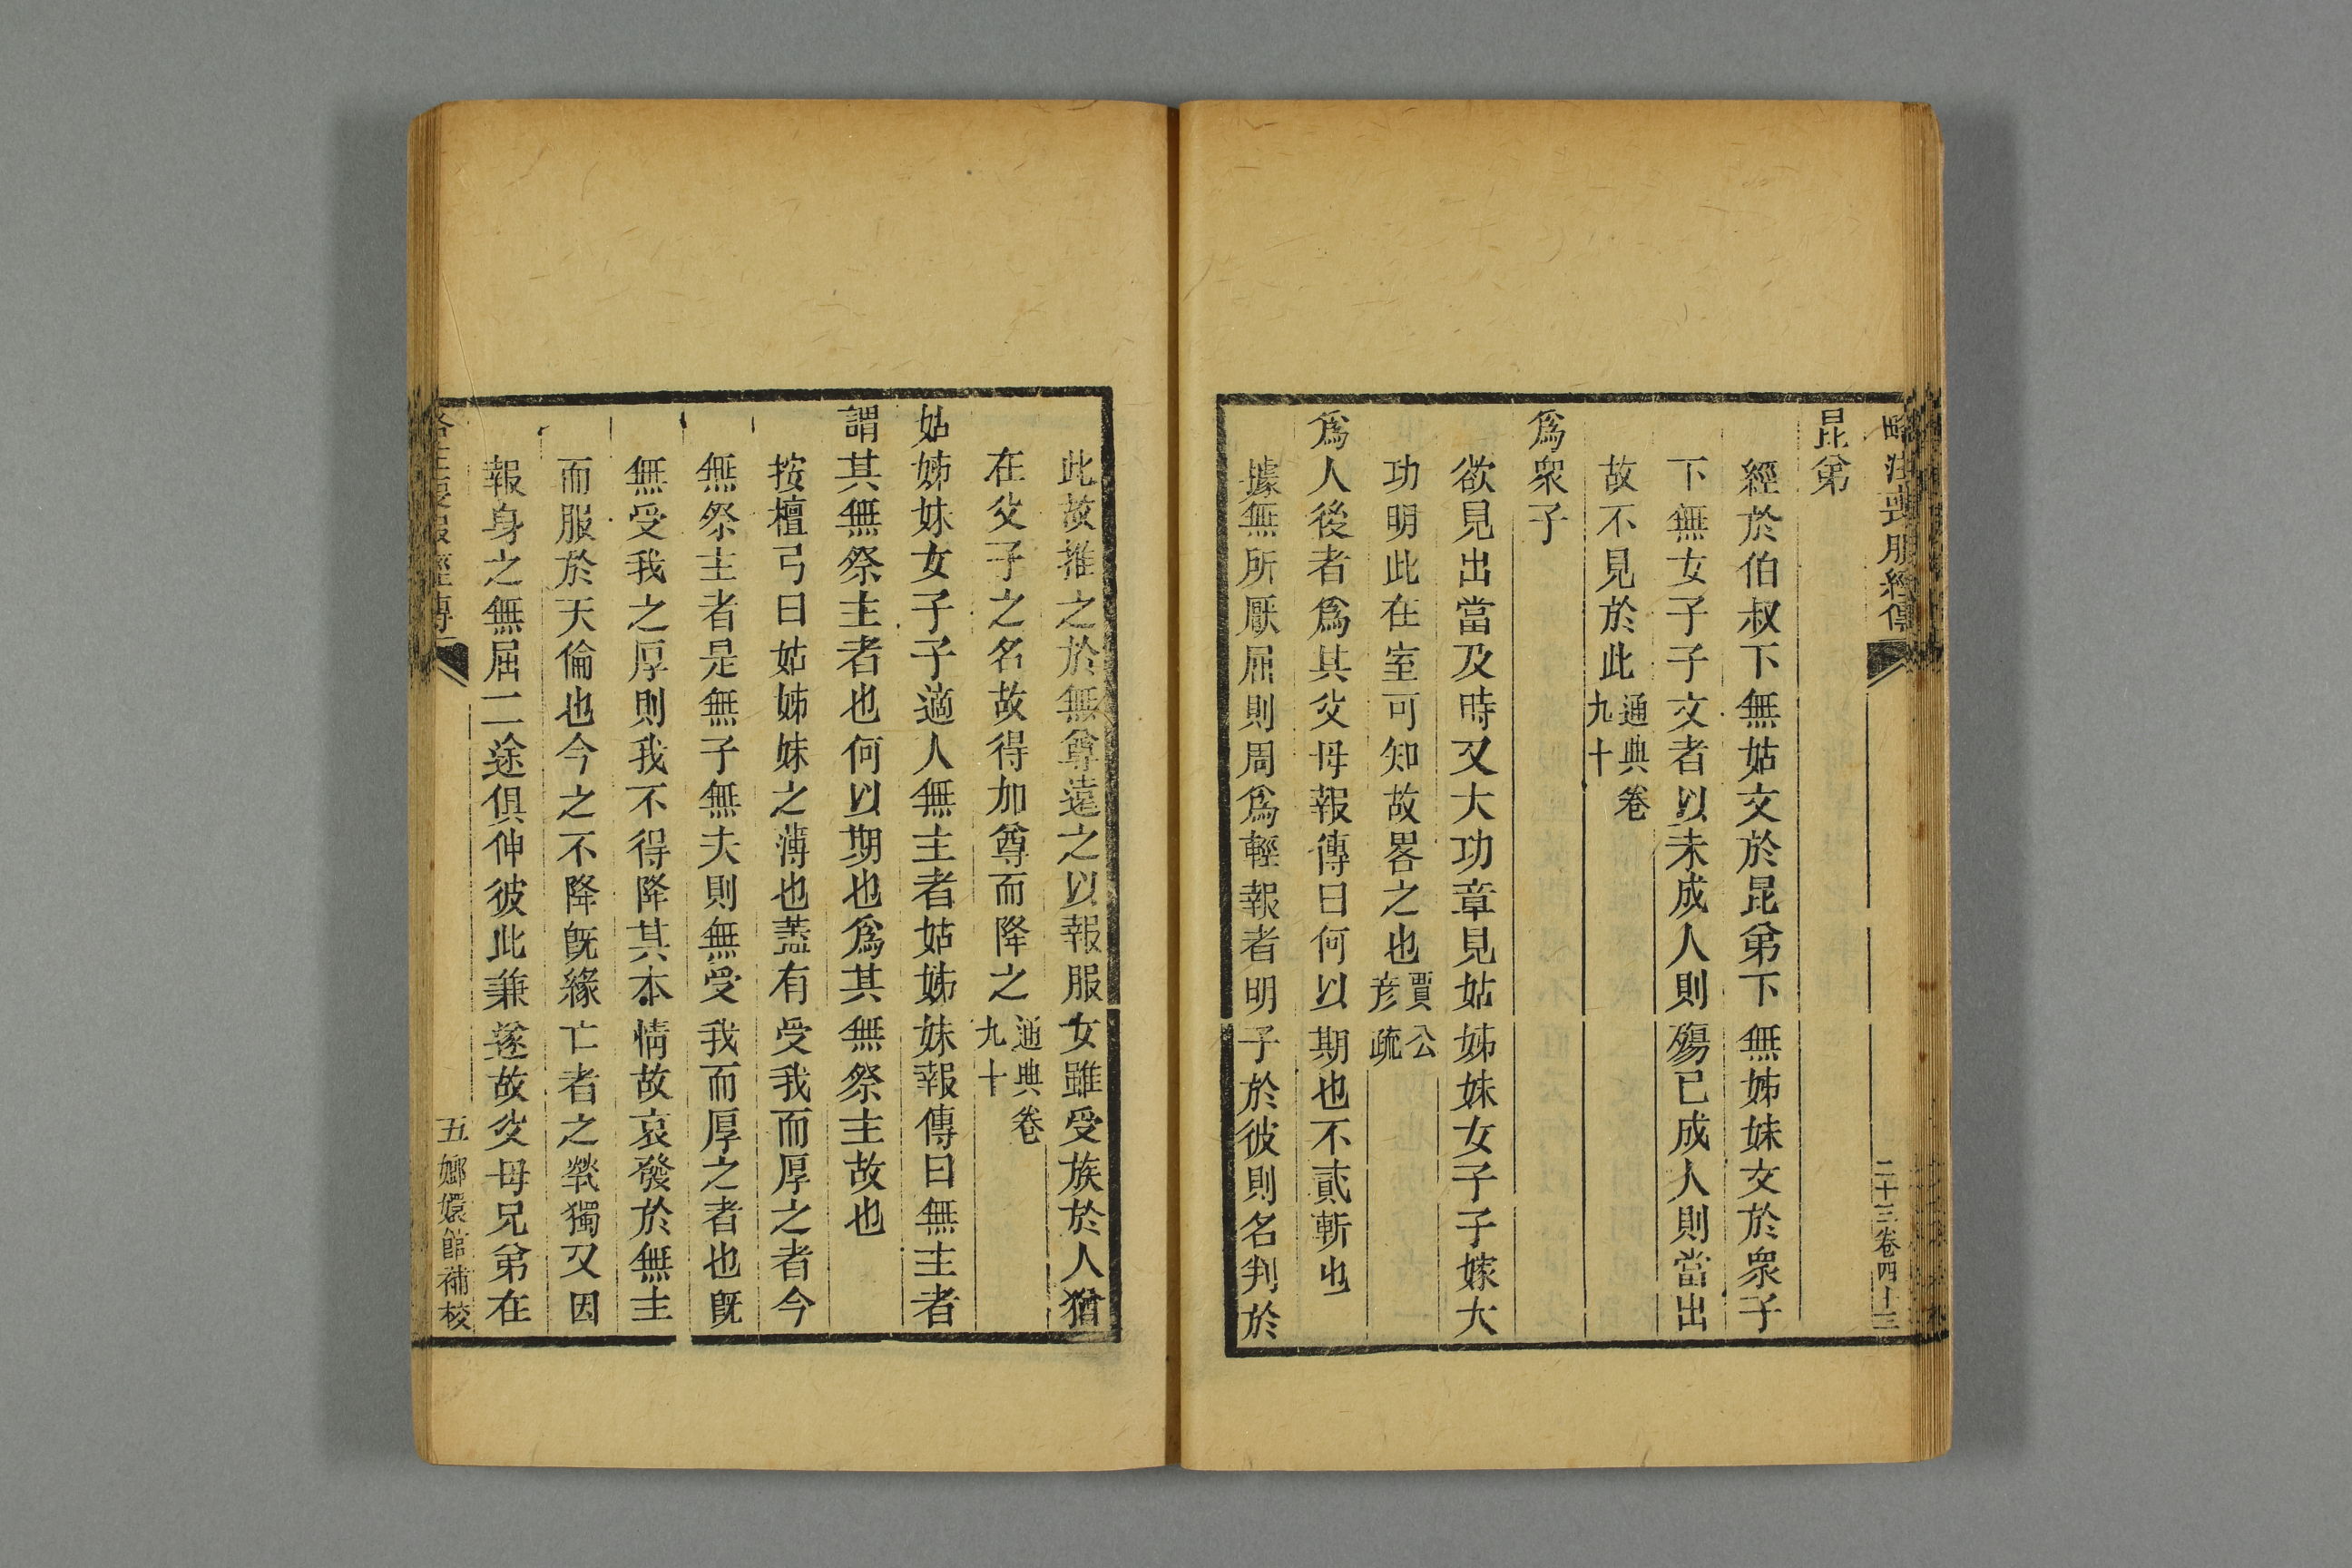 略注喪服經傳
二十三卷四十三
昆弟
經於伯叔下無姑文於昆弟下無姊妹文於眾子
下無女子子文者以未成人則殤已成人則當出
故不見於此通典卷九十
為衆子
欲見出當及時又大功章見姑姊妹女子子嫁大
功明此在室可知故畧之也賈公彥疏
為人後者為其父母報傳曰何以期也不貳斬也
據無所厭屈則周為輕報者明子於彼則名判於
此故推之於無尊遠之以報服女雖受族於人猶
在父子之名故得加尊而降之通典卷九十
姑姊妹女子子適人無主者姑姊妹報傳曰無主者
謂其無祭主者也何以期也為其無祭主故也
按檀弓曰姑姊妹之薄也蓋有受我而厚之者今
無祭主者是無子無夫則無受我而厚之者也旣
無受我之厚則我不得降其本情故哀發於無主
而服於天倫也今之不降旣緣亡者之煢獨又因
報身之無屈二途俱伸彼此兼遂故父母兄弟在
五
嫏嬛館補校